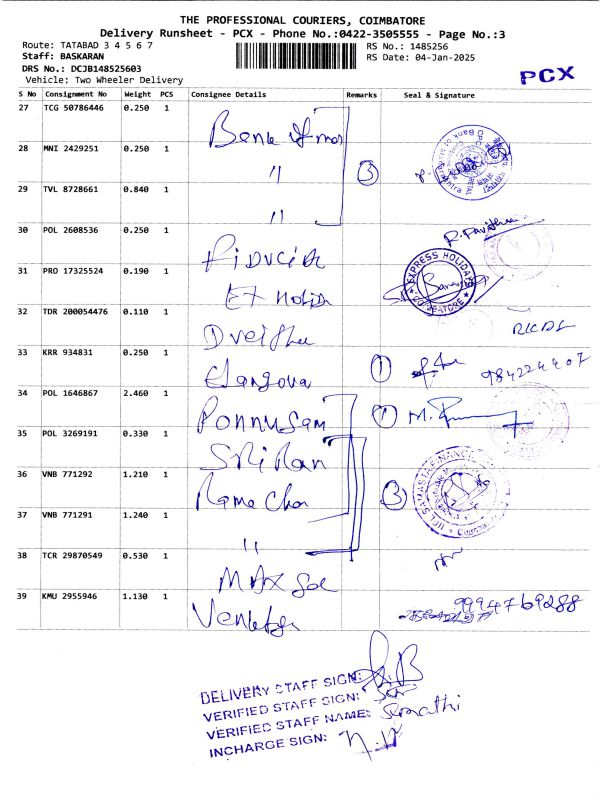 THE PROFESSIONAL COURIERS, COIMBATORE
Delivery Runsheet - PCX - Phone No.:0422-3505555 - Page No.:3
Route: TATABAD 3 4 5 6 7
RS No.: 1485256
Staff: BASKARAN
RS Date: 04-Jan-2025
DRS No.: DCJB148525603
Vehicle: Two Wheeler Delivery
PCX
S No Consignment No Weight PCS Consignee Details Remarks Seal & Signature
27 TCG 50786446 0.250 1
28 MNI 2429251 0.250 1 " 3
29 TVL 8728661 0.840 1 "
30 POL 2608536 0.250 1 R. Pavithra
31 PRO 17325524 0.190 1 EXPRESS HOLIDAY COIMBATORE
32 TDR 200054476 0.110 1
33 KRR 934831 0.250 1 Elangova 1 984224407
34 POL 1646867 2.460 1 Ponnusami 1
35 POL 3269191 0.330 1 SRiRan
36 VNB 771292 1.210 1 Rama Chan 3 IIFL SAMASTA FINANCE
37 VNB 771291 1.240 1 "
38 TCR 29870549 0.530 1
39 KMU 2955946 1.130 1 9994769288
DELIVERY STAFF SIGN:
VERIFIED STAFF SIGN:
VERIFIED STAFF NAME: Sumathi
INCHARGE SIGN: